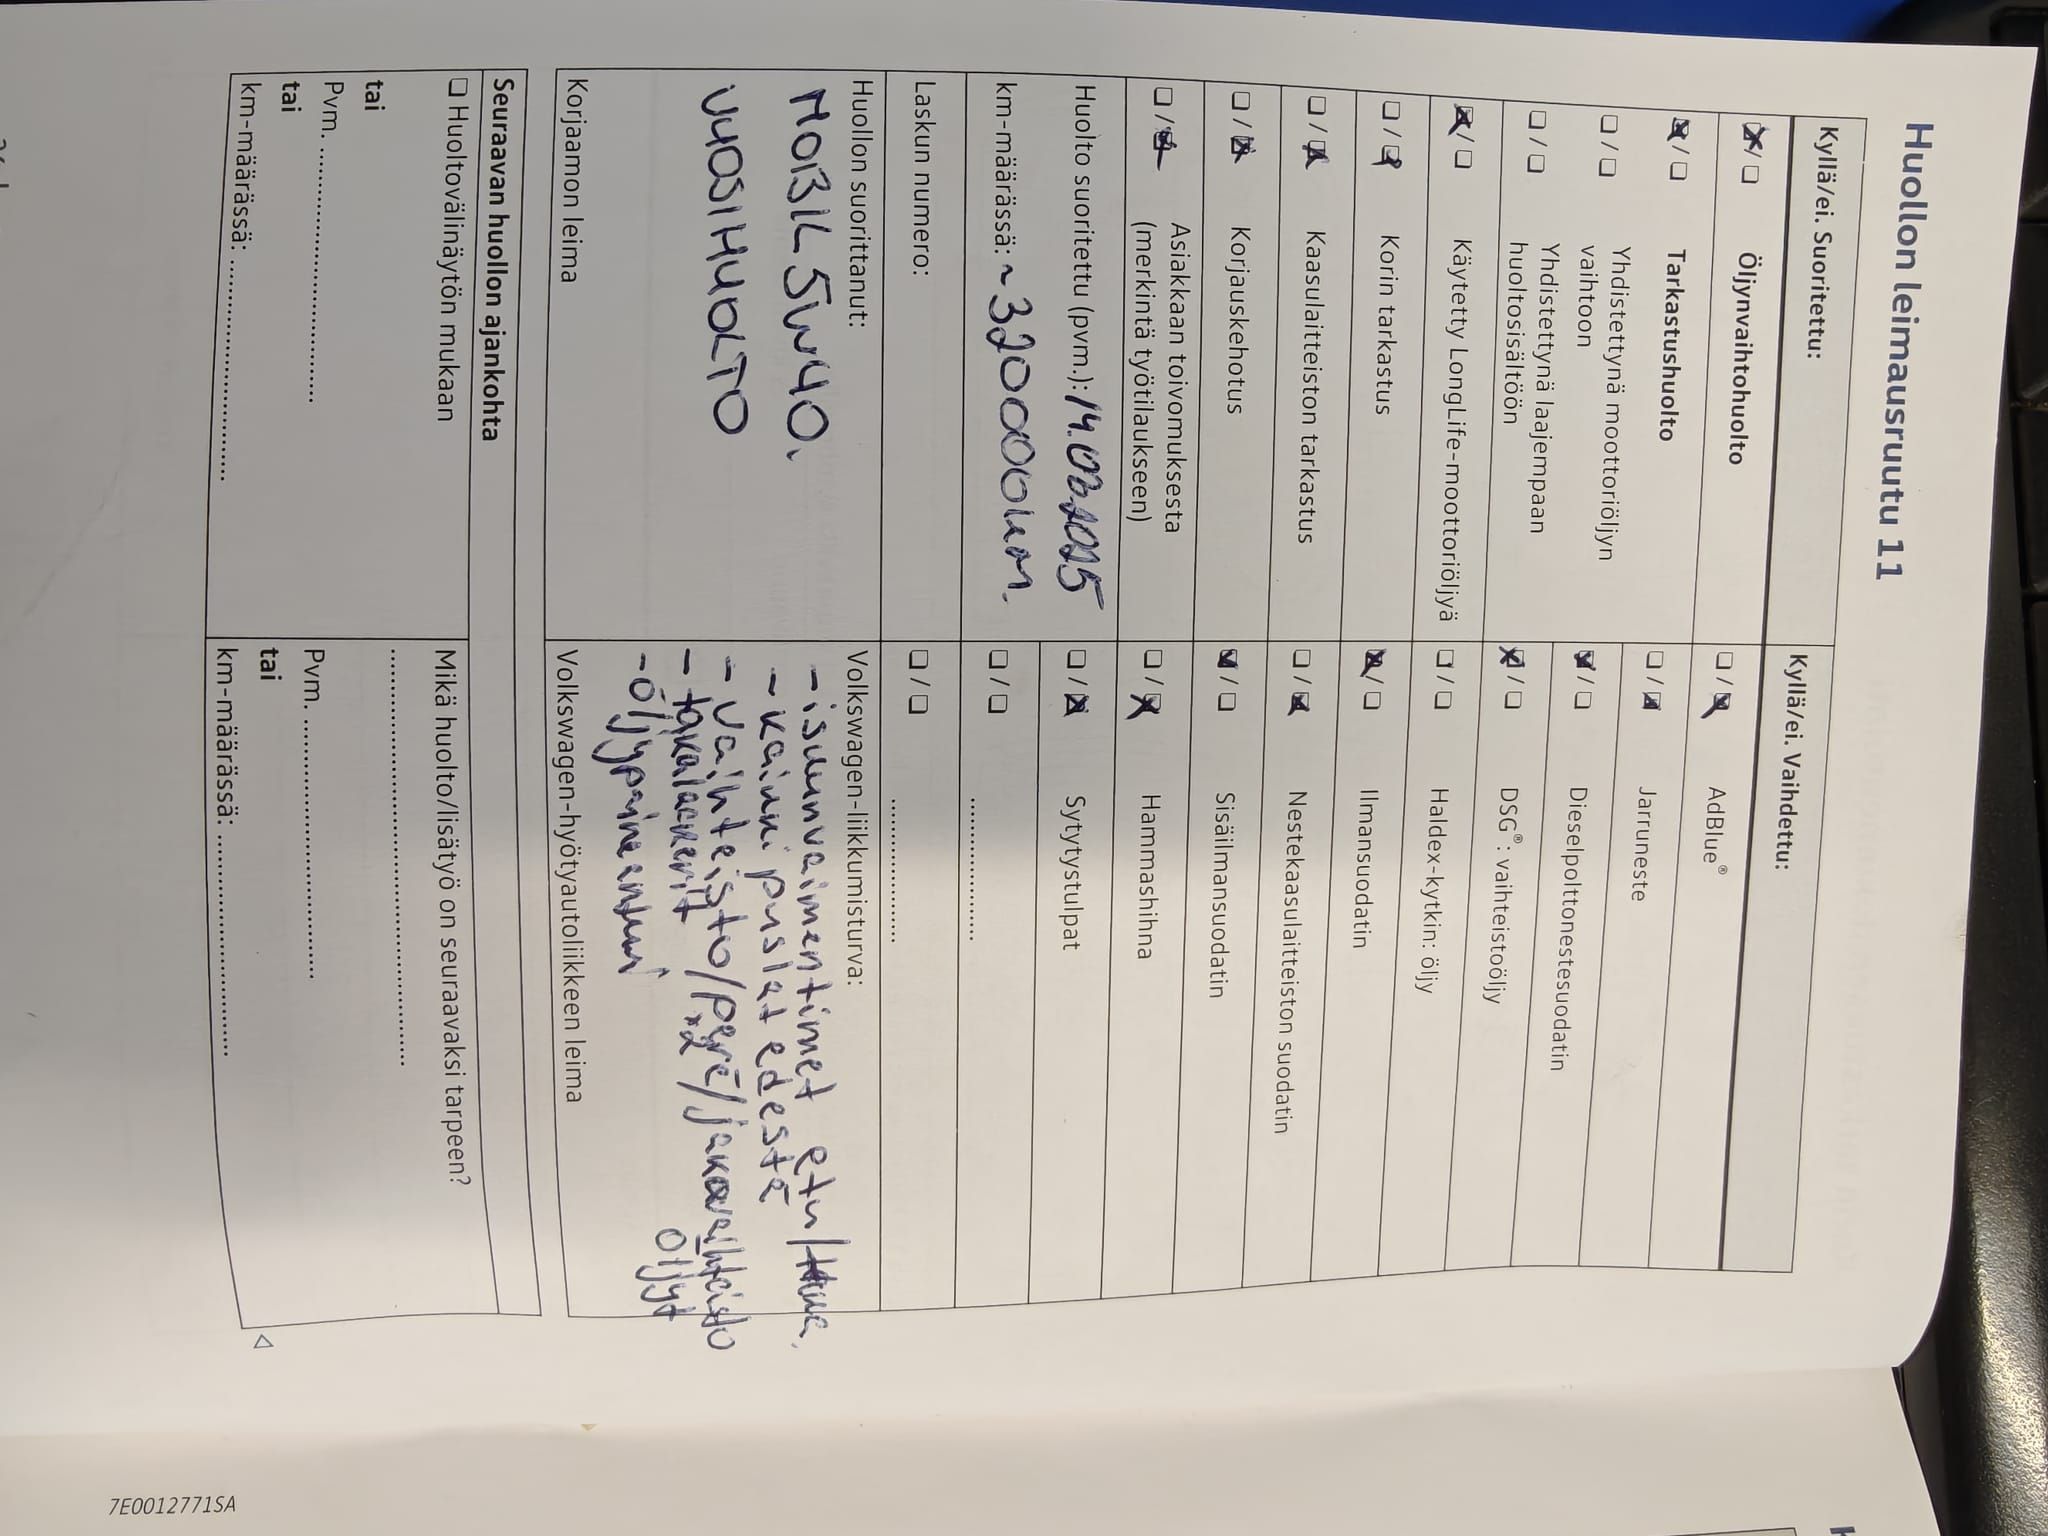 Huollon leimausruutu 11
Kyllä/ei. Suoritettu:
☒/☐ Öljynvaihtohuolto
☒/☐ Tarkastushuolto
☐/☐ Yhdistettynä moottoriöljyn
vaihtoon
☐/☐ Yhdistettynä laajempaan
huoltosisältöön
☒/☐ Käytetty LongLife-moottoriöljyä
☐/☒ Korin tarkastus
☐/☒ Kaasulaitteiston tarkastus
☐/☒ Korjauskehotus
☐/☒ Asiakkaan toivomuksesta
(merkintä työtilaukseen)
Huolto suoritettu (pvm.): 14.02.2025
km-määrässä: ~320000km.
Laskun numero:
Huollon suorittanut:
MOBIL 5W40.
VUOSIHUOLTO
Korjaamon leima
Kyllä/ei. Vaihdettu:
☐/☒ AdBlue®
☐/☒ Jarruneste
☒/☐ Dieselpolttonestesuodatin
☒/☐ DSG®: vaihteistoöljy
☐/☐ Haldex-kytkin: öljy
☒/☐ Ilmansuodatin
☐/☒ Nestekaasulaitteiston suodatin
☒/☐ Sisäilmansuodatin
☐/☒ Hammashihna
☐/☒ Sytytystulpat
☐/☐ ....................
☐/☐ ....................
Volkswagen-liikkumisturva:
- iskunvaimentimet etu/taka.
- kaikki puslat edestä
- vaihteisto/perä/jakovaihteisto
öljyt
- takalaakerit x2
- Öljypaineanturi
Volkswagen-hyötyautoliikkeen leima
Seuraavan huollon ajankohta
☐ Huoltovälinäytön mukaan
tai
Pvm. ....................
tai
km-määrässä: ....................
Mikä huolto/lisätyö on seuraavaksi tarpeen?
....................
Pvm. ....................
tai
km-määrässä: ....................
7E0012771SA